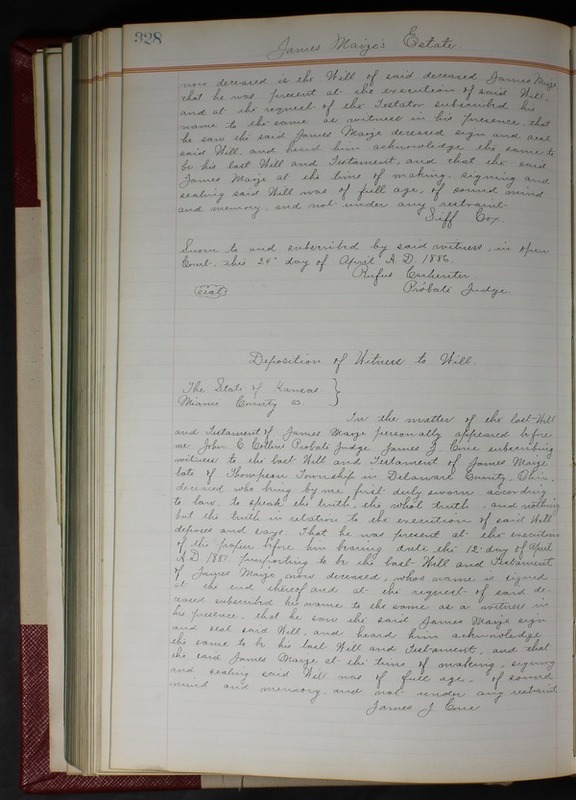 328
James Maize's Estate.
now deceased is the Will of said deceased James Maize
that he was present at the execution of said Will,
and at the request of the Testator subscribed his
name to the same as witness in his presence, that
he saw the said James Maize deceased sign and seal
said Will, and heard him acknowledge the same to
be his last Will and Testament, and that the said
James Maize at the time of making, signing and
sealing said Will was of full age, of sound mind
and memory, and not under any restraint.
Siff Cox.
Sworn to and subscribed by said witness, in open
Court, this 24" day of April A.D. 1886.
Rufus Carpenter
Seal
Probate Judge
Deposition of Witness to Will.
The State of Kansas }
Miami County ss.
In the matter of the last Will
and Testament of James Maize personally appeared before
me John C. Collins Probate Judge James J. Cone subscribing
witness to the last Will and Testament of James Maize
late of Thompson Township in Delaware County, Ohio,
deceased who being by me first duly sworn according
to law, to speak the truth, the whole truth, and nothing
but the truth in relation to the execution of said Will
deposes and says: That he was present at the execution
of the paper before him bearing date the 12" day of April
A.D. 1881. purporting to be the last Will and Testament
of James Maize now deceased, whos name is signed
at the end thereof and at the request of said de-
ceased subscribed his name to the same as a witness in
his presence, that he saw the said James Maize sign
and seal said Will, and heard him acknowledge
the same to be his last Will and Testament, and that
the said James Maize at the time of making, signing
and sealing said Will was of full age, of sound
mind and memory, and not under any restraint
James J. Cone